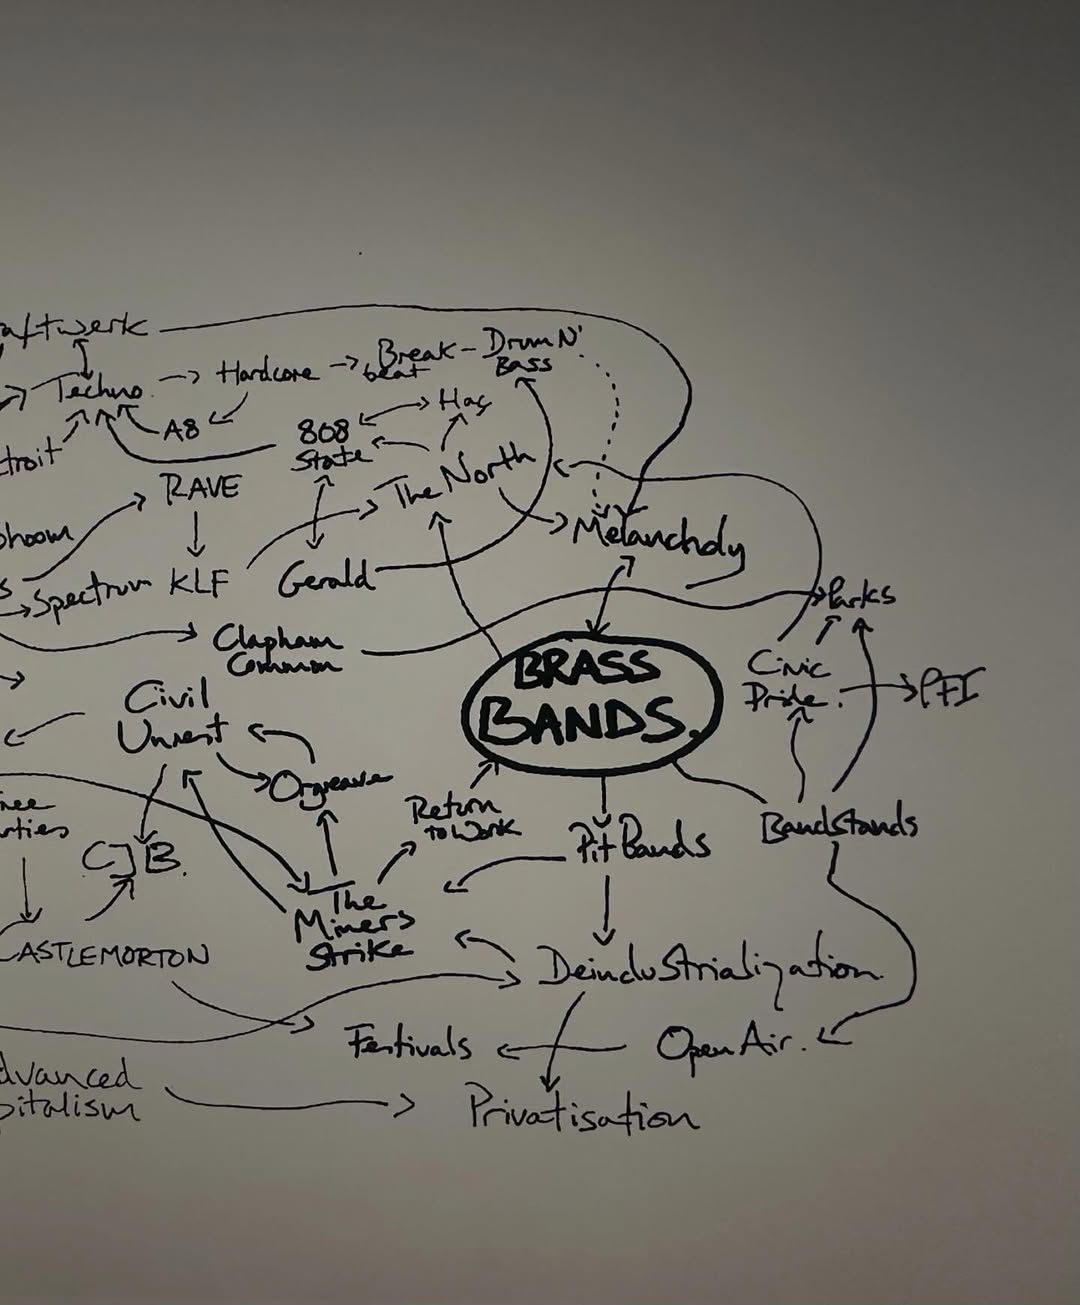 aftwerk
Techno.
Hardcore
Break-
beat
Drum N'
Bass
A8
808
State
Haç
The North
troit
RAVE
Melancholy
hoom
Spectrum
KLF
Gerald
Parks
Clapham
Common
BRASS
BANDS.
Civic
Pride.
PFI
Civil
Unrest
Orgreave
Return
to Work
Pit Bands
Bandstands
ree
rties
CJB.
The
Miners
Strike
CASTLEMORTON
Deindustrialization
Festivals
Open Air.
dvanced
pitalism
Privatisation